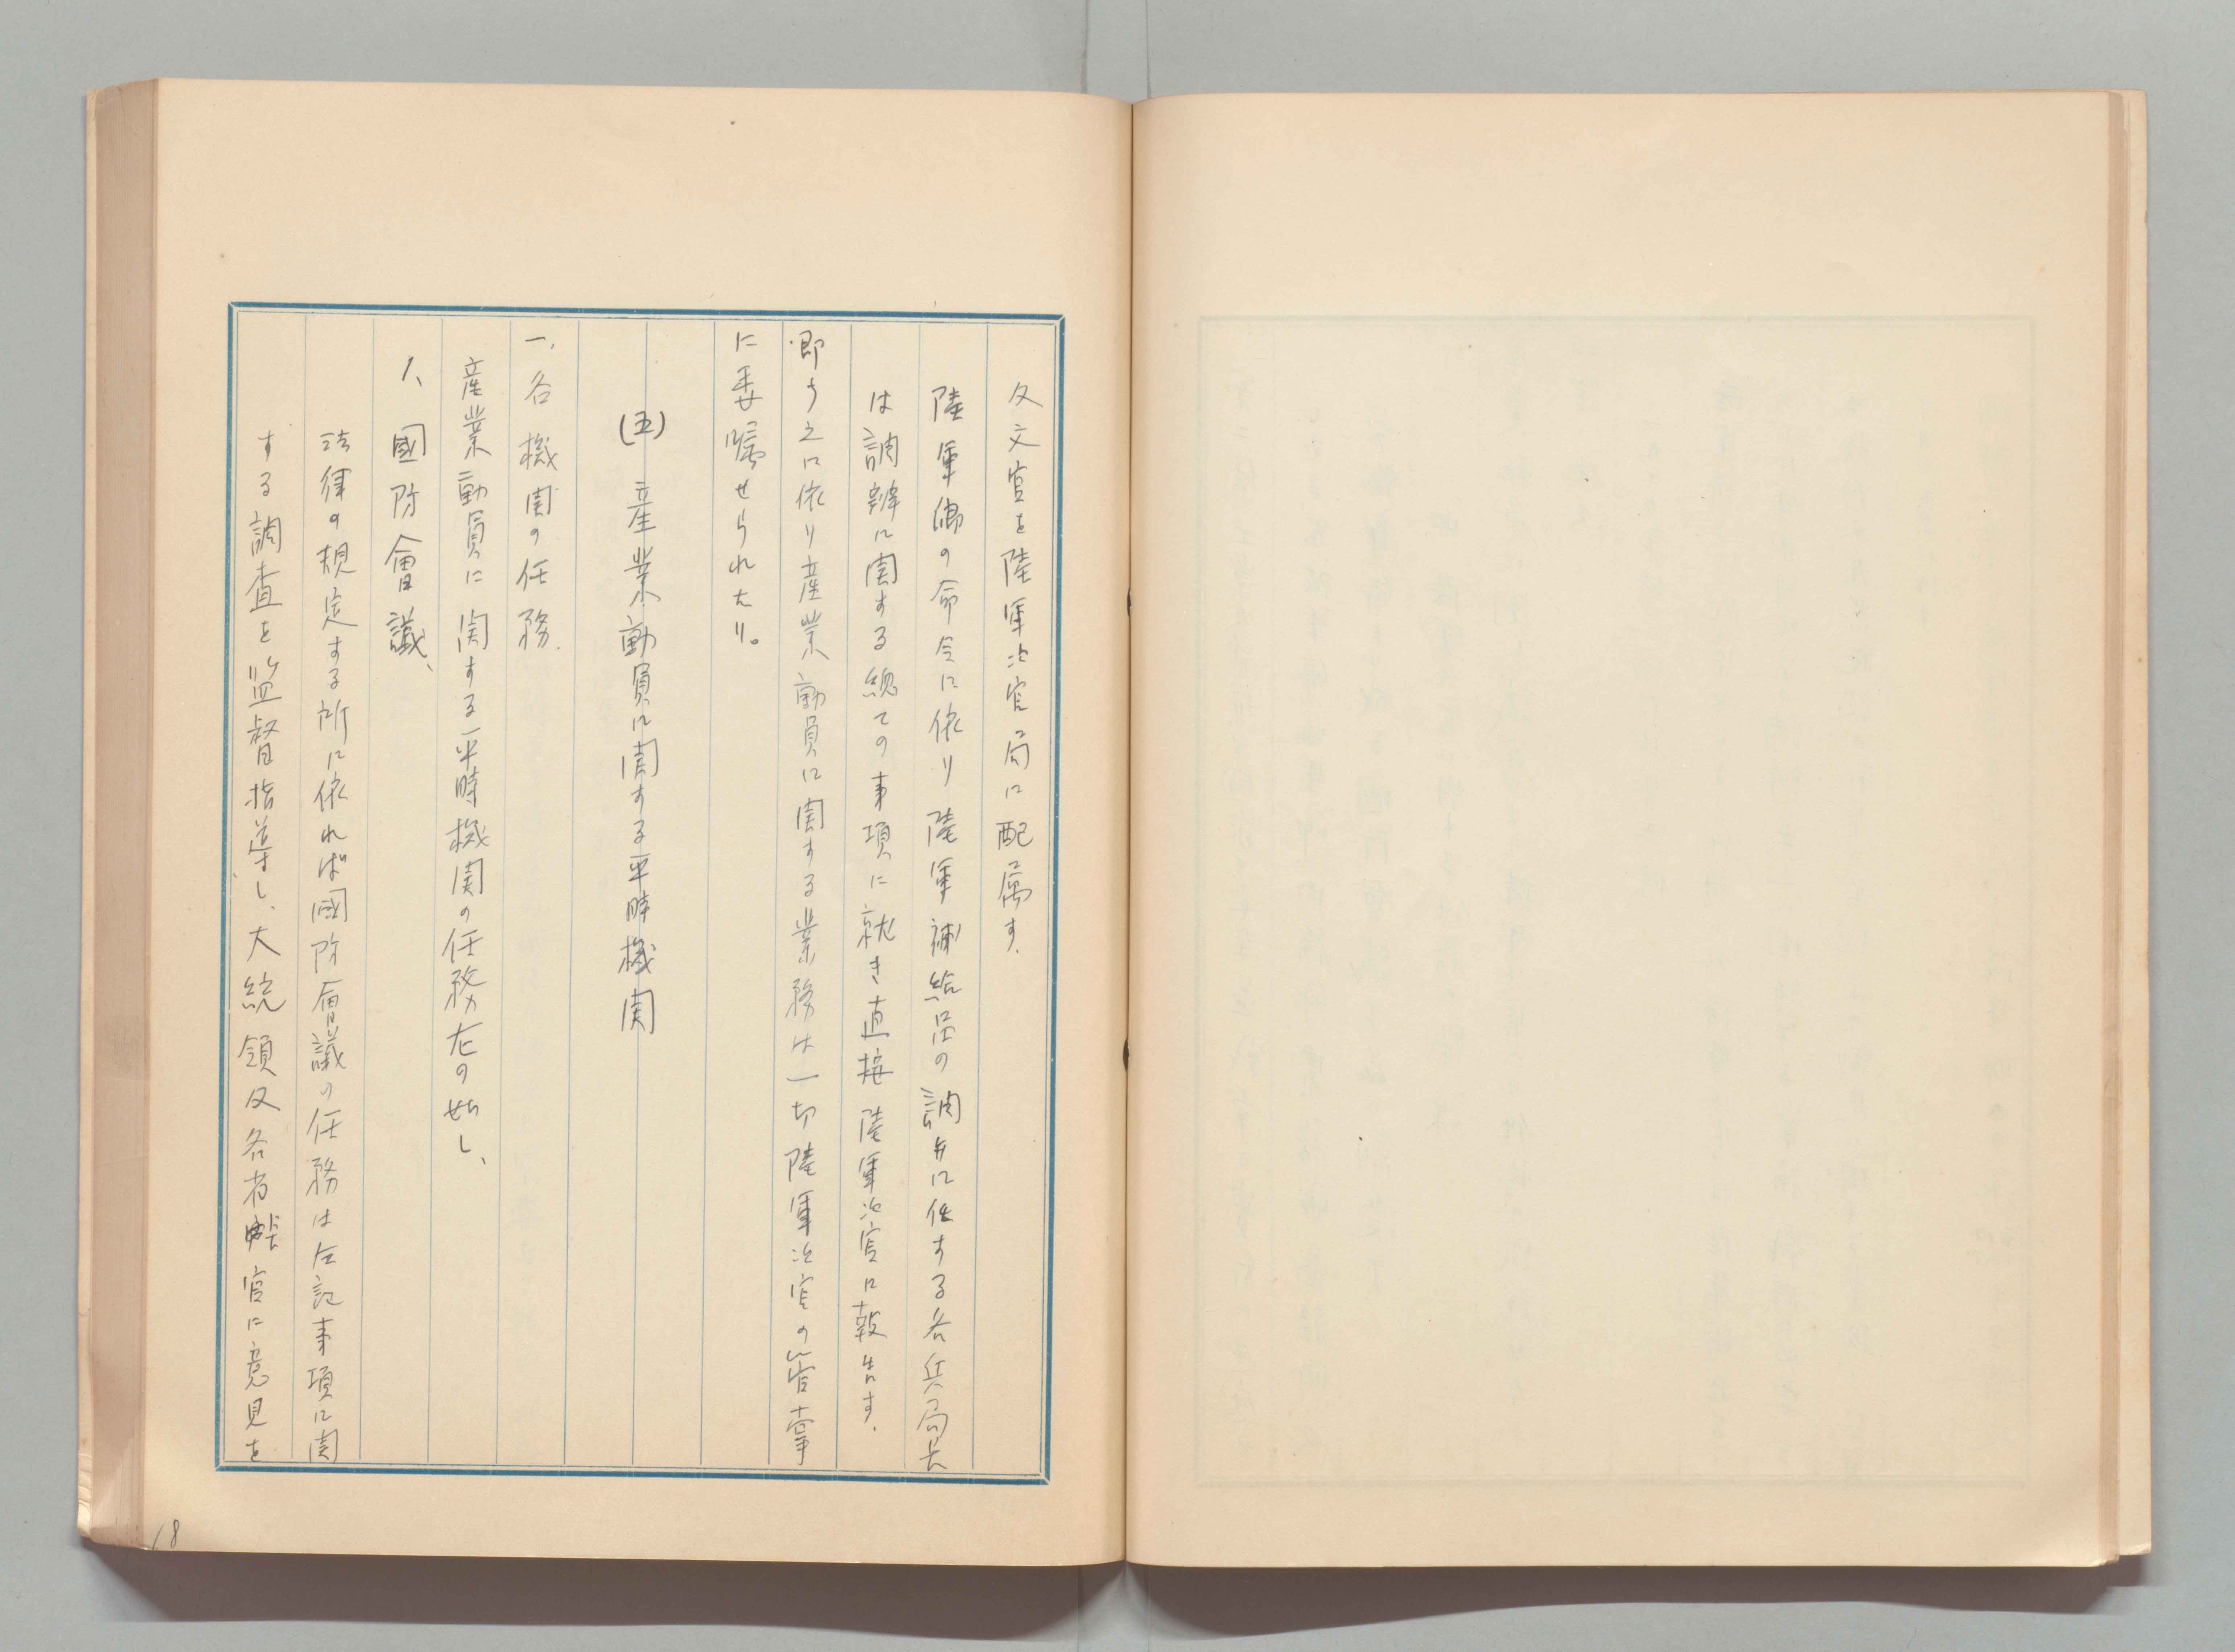 又文官を陸軍次官局に配属す.
陸軍卿の命令に依り陸軍補給品の調弁に任する各兵局長
は調辨に関する総ての事項に就き直接陸軍次官に報告す.
即ち之に依り産業動員に関する業務は一切陸軍次官の管掌
に委帰せられたり。
(五) 産業動員に関する平時機関
一、各機関の任務.
産業動員に関する平時機関の任務左の如し、
1、國防會議、
法律の規定する所に依れば國防會議の任務は左記事項に関
する調査を監督指導し、大統領及各省長官に意見を
18